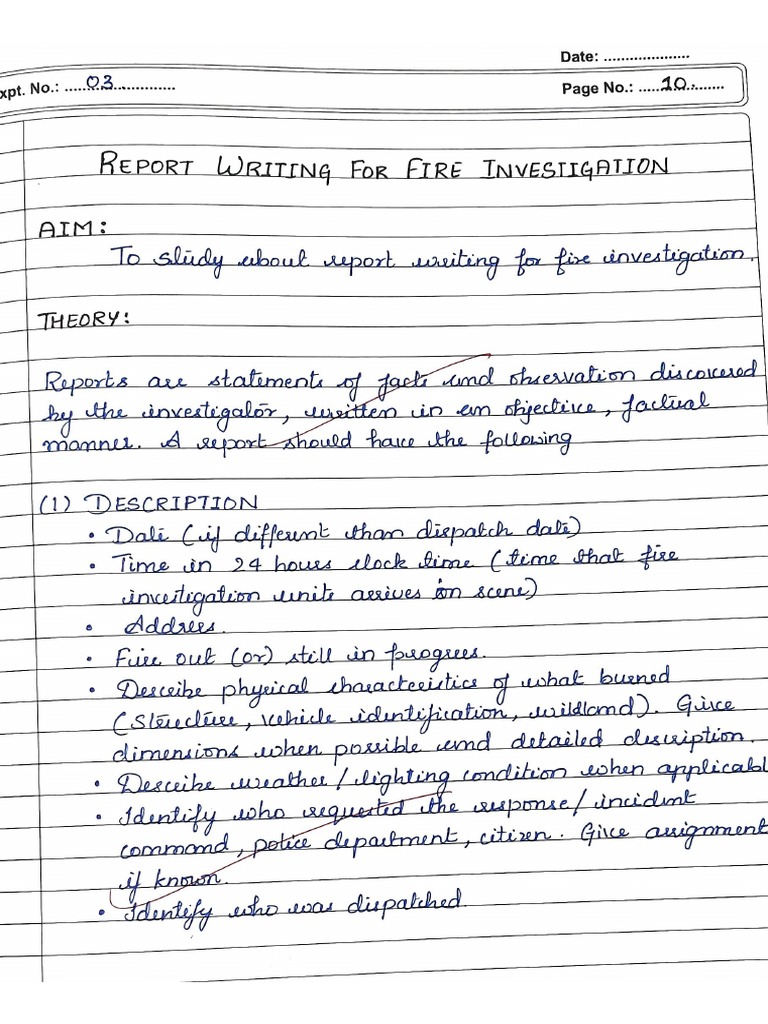 Date: ....................
xpt. No.: ......03..............
Page No.: ......10.........
REPORT WRITING FOR FIRE INVESTIGATION
AIM:
To study about report writing for fire investigation.
THEORY:
Reports are statements of facts and observation discovered
by the investigator, written in an objective, factual
manner. A report should have the following
(1) DESCRIPTION
• Date (if different than dispatch date)
• Time in 24 hours clock time (time that fire
investigation units arrives on scene)
• Address.
• Fire out (or) still in progress.
• Describe physical characteristics of what burned
(structure, vehicle identification, wildland). Give
dimensions when possible and detailed description.
• Describe weather/lighting condition when applicabl
• Identify who requested the response/incident
command, police department, citizen. Give assignment
if known.
• Identify who was dispatched.